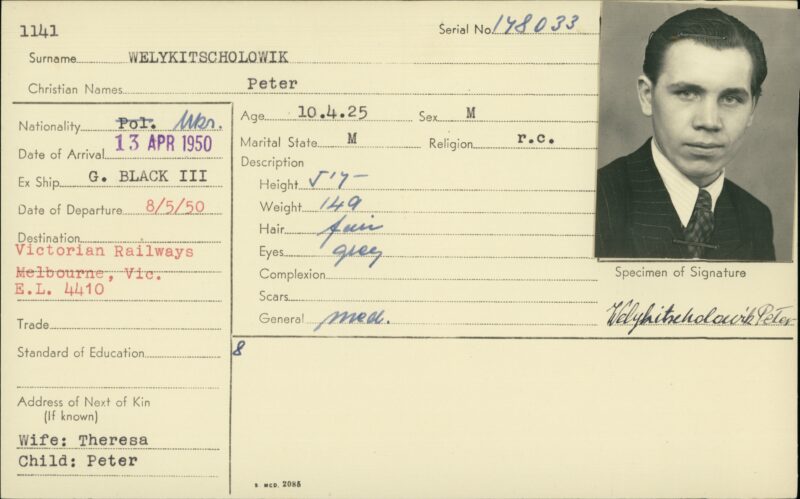 1141
Serial No. 178033
Surname WELYKITSCHOLOWIK
Christian Names Peter
Nationality Pol. Ukr.
Date of Arrival 13 APR 1950
Ex Ship G. BLACK III
Date of Departure 8/5/50
Destination
Victorian Railways
Melbourne, Vic.
E.L. 4410
Trade
Standard of Education 8
Address of Next of Kin
(If known)
Wife: Theresa
Child: Peter
Age 10.4.25 Sex M
Marital State M Religion r.c.
Description
Height 5'7-
Weight 149
Hair fair
Eyes grey
Complexion
Scars
General med.
Specimen of Signature
Welykitscholowik Peter
S MCD. 2085